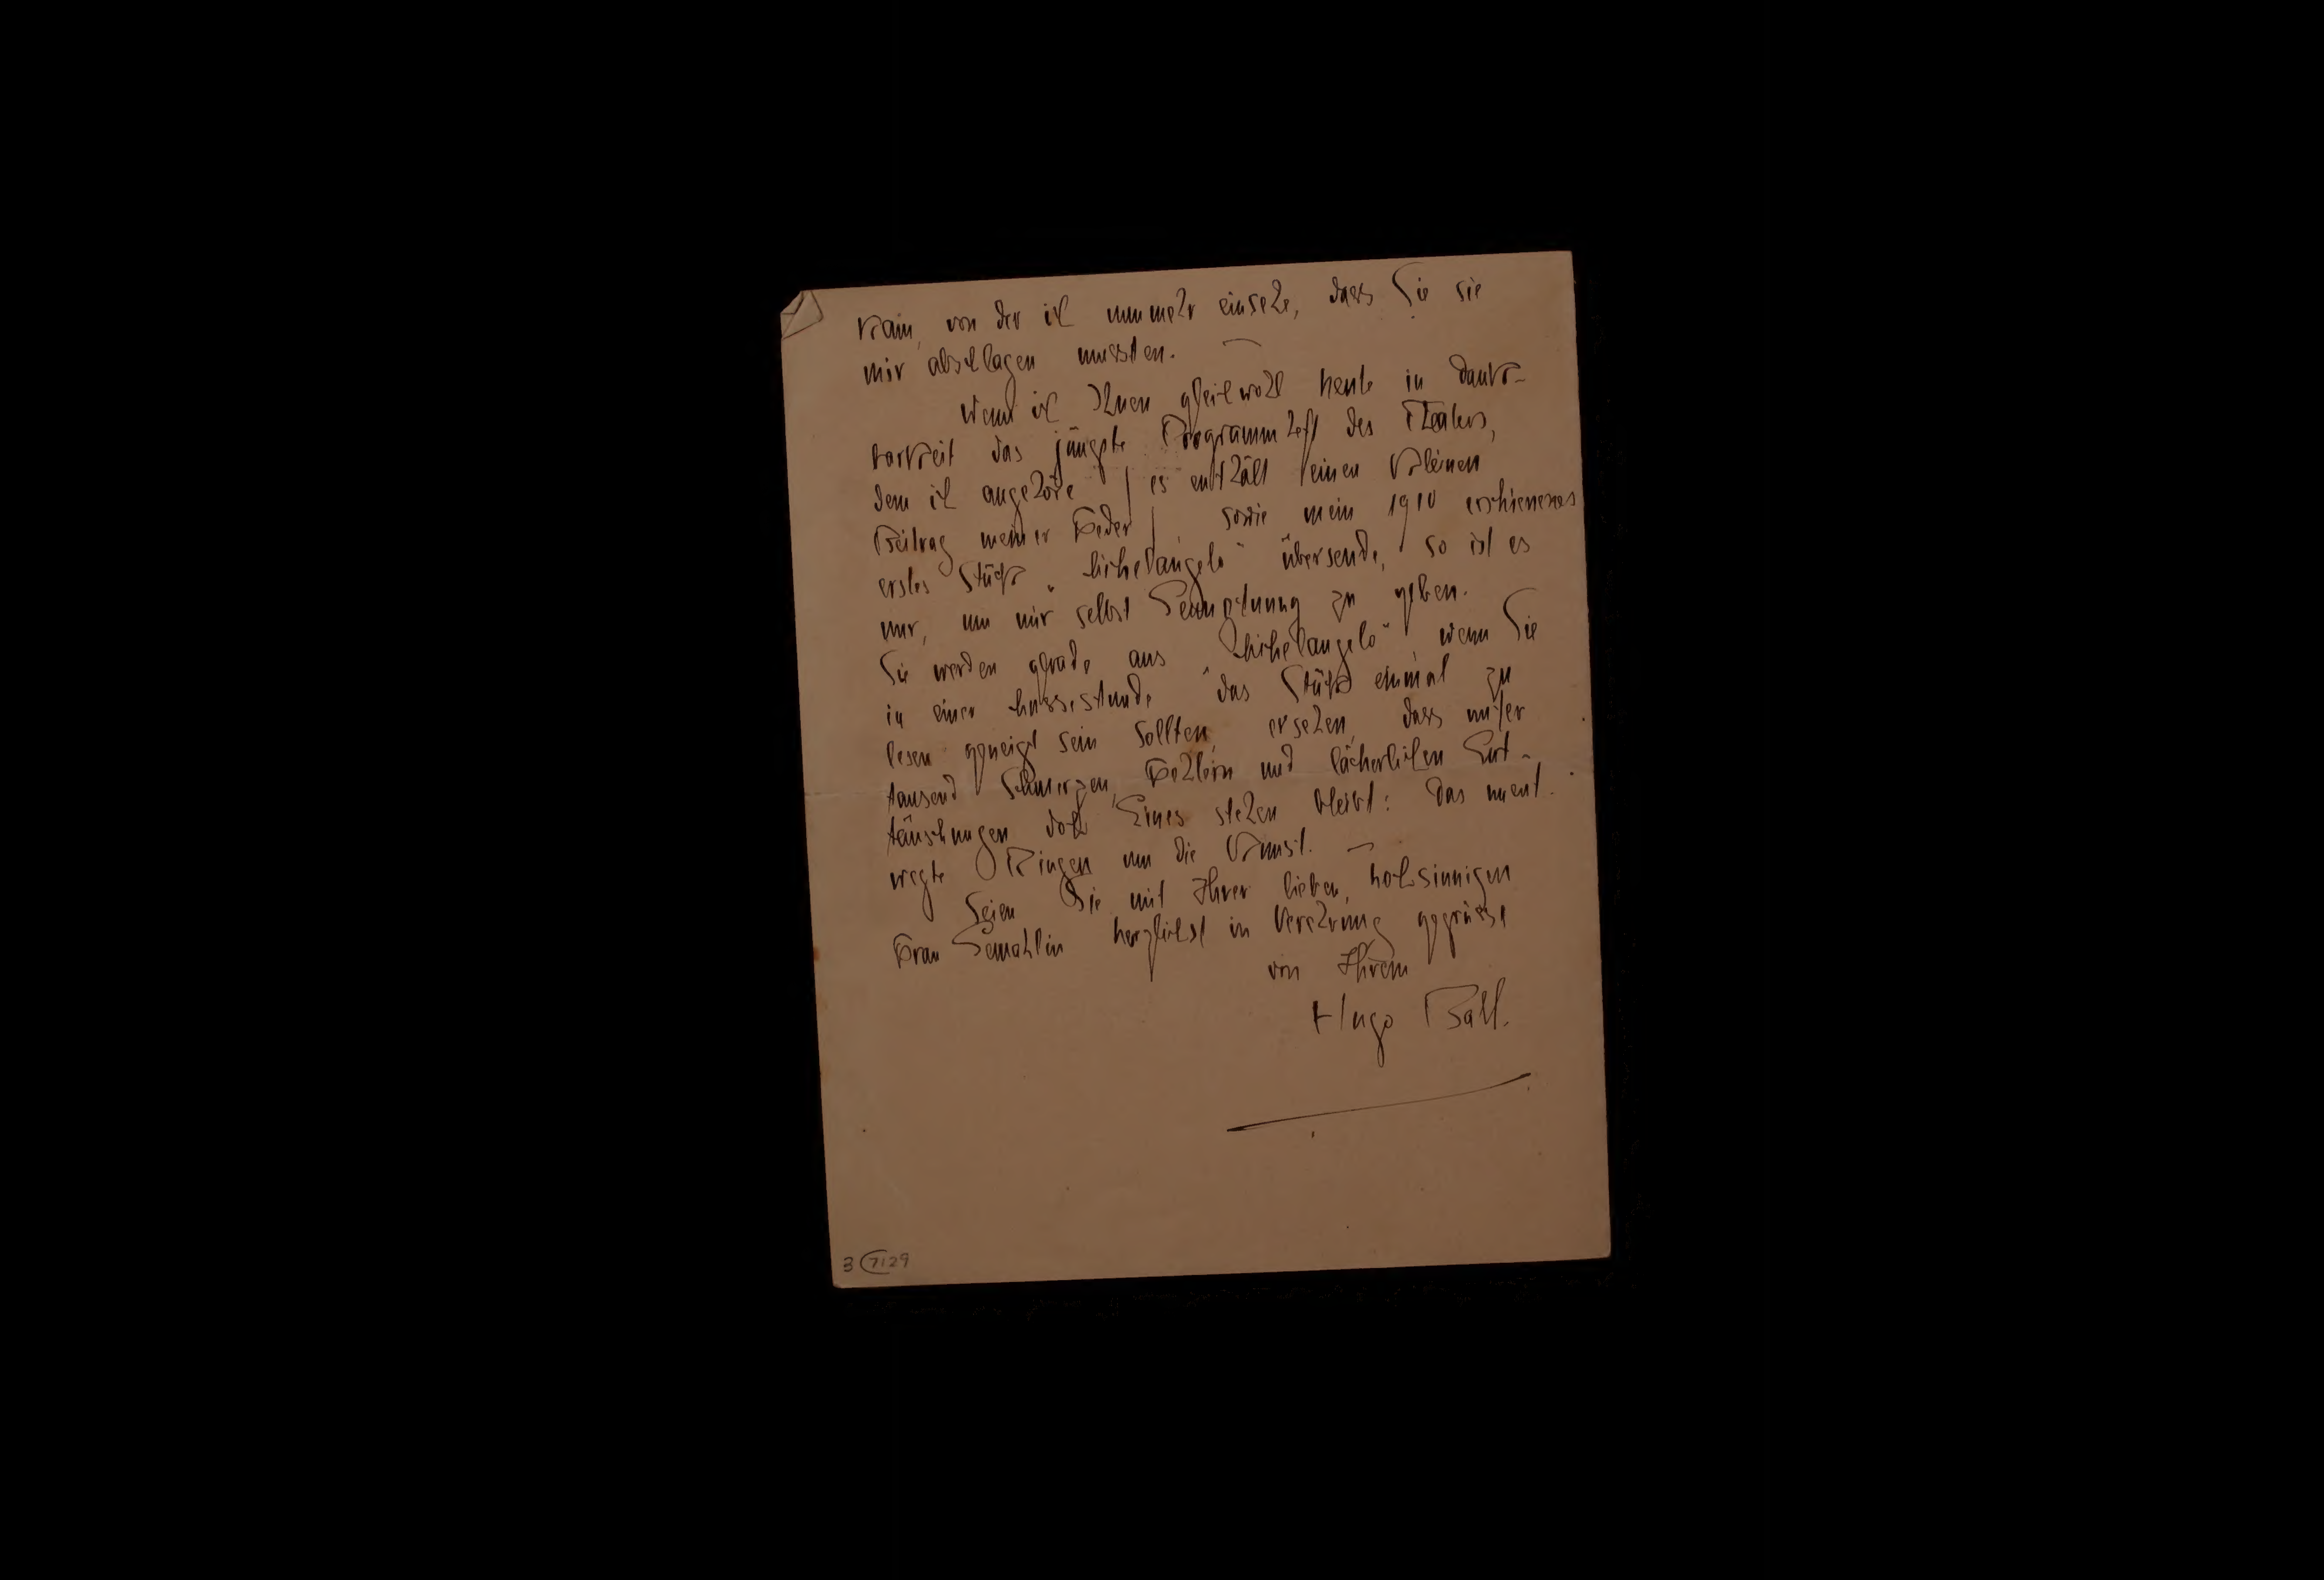 kam, von der ich nunmehr einsehe, dass Sie sie
mir abschlagen mussten. —
Wenn ich Ihnen gleichwohl heute in Dank-
barkeit das jüngste Programmheft des Theaters,
dem ich angehöre / es enthält einen kleinen
Beitrag meiner Feder / sowie mein 1910 erschienenes
erstes Stück „Michelangelo" übersende, so ist es
nur, um mir selbst Genugtuung zu geben.
Sie werden gerade aus „Michelangelo", wenn Sie
in einer Mussestunde das Stück einmal zu
lesen geneigt sein sollten, ersehen, dass unter
tausend Schmerzen, Fehlern und lächerlichen Ent-
täuschungen doch Eines stehen bleibt: Das unent-
wegte Ringen um die Kunst. —
Seien Sie mit Ihrer lieben, hochsinnigen
Frau Gemahlin herzlichst in Verehrung gegrüsst
von Ihrem
Hugo Ball.
3 7129